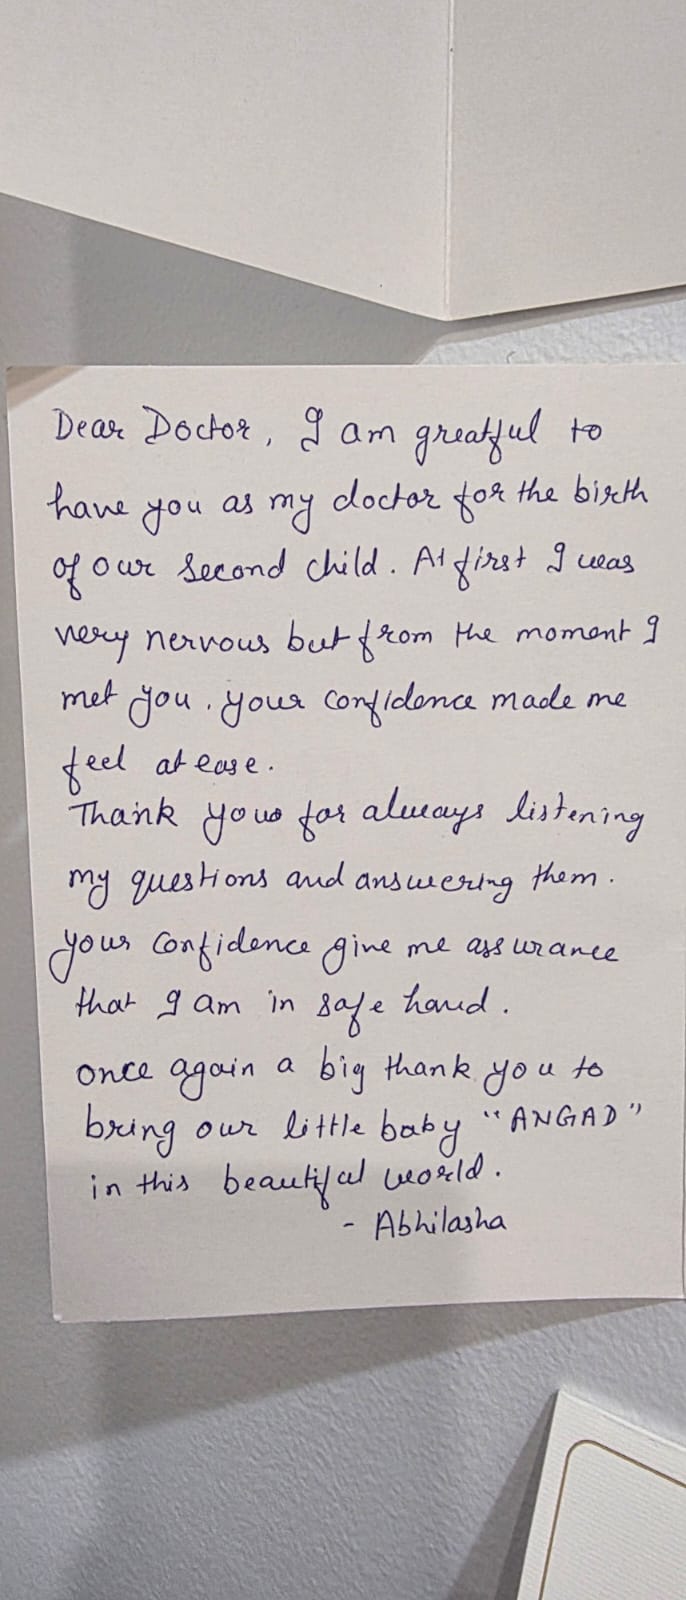 Dear Doctor, I am greatful to
have you as my doctor for the birth
of our second child. At first I was
very nervous but from the moment I
met you, your confidence made me
feel at ease.
Thank you for always listening
my questions and answering them.
your confidence give me assurance
that I am in safe hand.
once again a big thank you to
bring our little baby "ANGAD"
in this beautiful world.
- Abhilasha